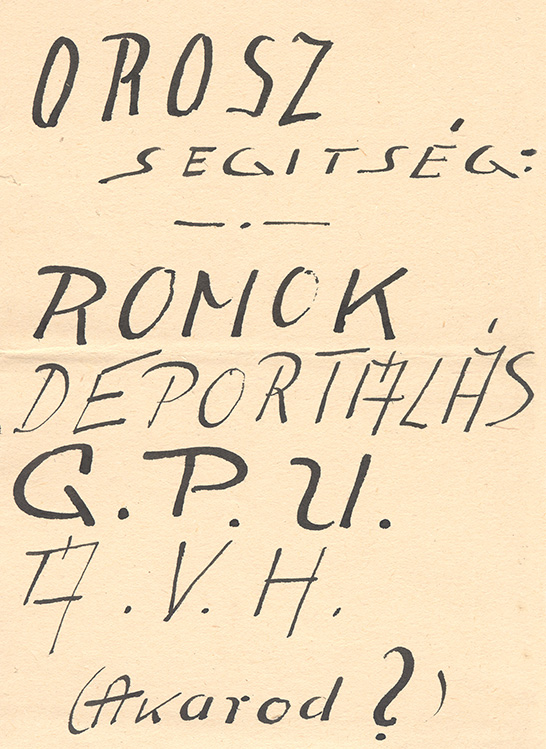 OROSZ
SEGITSÉG:
—.—
ROMOK
DEPORTÁLÁS
G.P.U.
A.V.H.
(Akarod?)